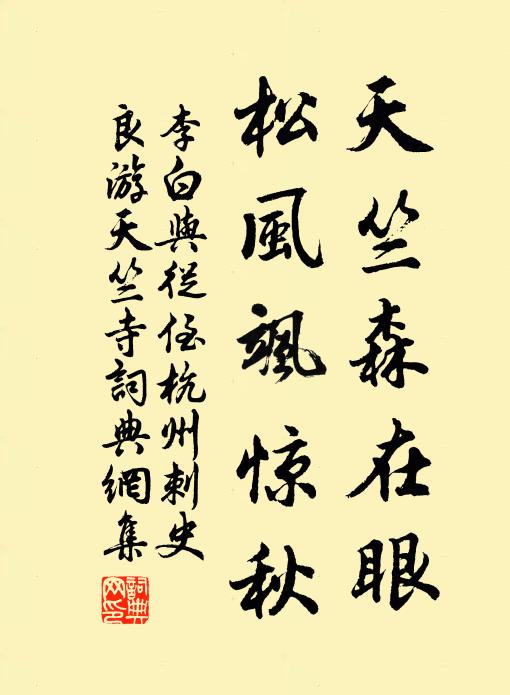 天竺森在眼
松風颯惊秋
李白與從侄杭州刺史
良游天竺寺詞典網集
詞典网印